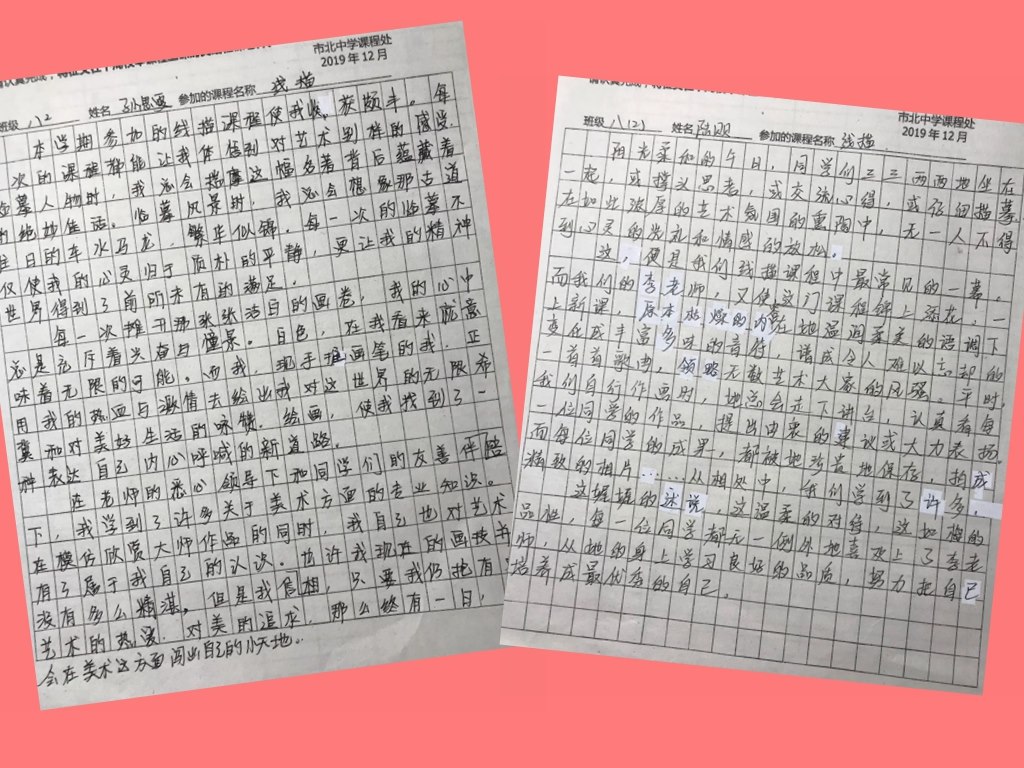 市北中学课程处
2019年12月
班级 八2 姓名 参加的课程名称 线描
本学期参加的线描课程使我收获颇丰。每
次的课程都能让我体悟到对艺术别样的感受.
临摹人物时,我总会揣摩这幅名著背后蕴藏着
的绝妙佳话。临摹风景时,我总会想象那古道
昔日的车水马龙、繁华似锦。每一次的临摹不
仅使我的心灵归于质朴的平静,更让我的精神
世界得到了前所未有的满足。
每一次摊开那张张洁白的画卷,我的心中
总是充斥着兴奋与憧憬。白色,在我看来就意
味着无限的可能。而我,现手握画笔的我.正
用我的热血与激情去绘出我对这世界的无限希
冀和对美好生活的咏赞。绘画,使我找到了一
种表达自己内心呼喊的新道路。
在老师的悉心领导下和同学们的友善伴陪
下,我学到了许多关于美术方面的专业知识。
在模仿欣赏大师作品的同时,我自己也对艺术
有了属于我自己的认次。也许我现在的画技并
没有多么精湛。但是我信相,只要我仍抱有
艺术的热爱.对美的追求,那么终有一日,
会在美术这方面闯出自己的小天地。
市北中学课程处
2019年12月
班级 八(2) 姓名 参加的课程名称 线描
阳光柔和的午日,同学们三三两两地坐在
一起,或撑头思考,或交流心得,或仔细描摹
在如此浓厚的艺术氛围的熏陶中,无一人不得
到心灵的洗礼和情感的放松。
这,便是我们线描课程中最常见的一幕。
而我们的李老师,又使这门课程锦上添花:一
上新课,原本枯燥的内容在她温润柔美的语调下
变成丰富多味的音符,谱成令人难以忘却的
一首首歌曲,领略无数艺术大家的风强。平时,
我们自行作画时,她总会走下讲台,认真看每
一位同学的作品,提出中衷的建议或大力表扬.
而每位同学的成果,都被她珍喜地保存,拍成
精致的相片……从相处中,我们学到了许多,
这娓娓的述说,这温柔的对待,这如梅的
品性,每一位同学都无一例外地喜欢上了李老
师.从她的身上学习良好的品质,努力把自己
培养成最优秀的自己.